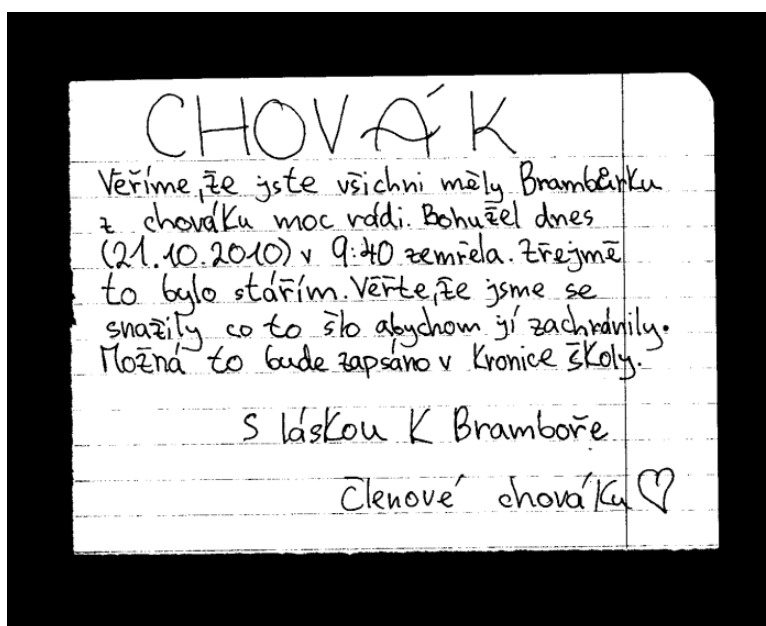 CHOVÁK
Veříme, že jste všichni měly Brambůrku
z chováku moc rádi. Bohužel dnes
(21.10.2010) v 9:40 zemřela. Zřejmě
to bylo stářím. Věřte, že jsme se
snažily co to šlo abychom jí zachránily.
Možná to bude zapsáno v Kronice školy.
S láskou K Bramboře
Členové chováku ♡